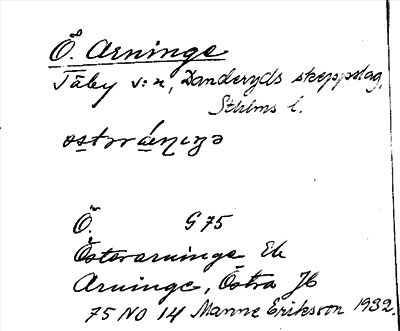 Ö. Arninge
Täby s:n, Danderyds skeppslag,
Sthlms l.
Ö. G 75
Österarninge Ek
Arninge, Östra JK
75 NO 14 Manne Eriksson 1932.